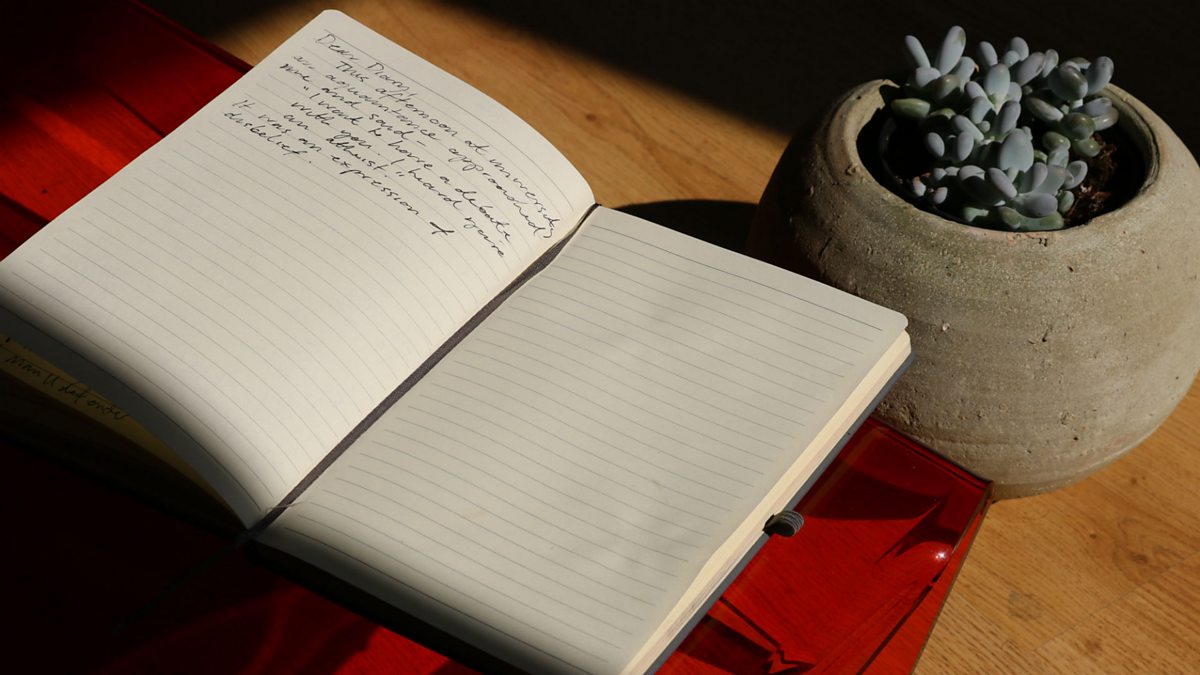 Dear Diary,
This afternoon at university,
an aquaintance approached
me and said -
"I want to have a debate
with you. I heard you're
an athiest."
It was an expression of
disbelief.
Man U